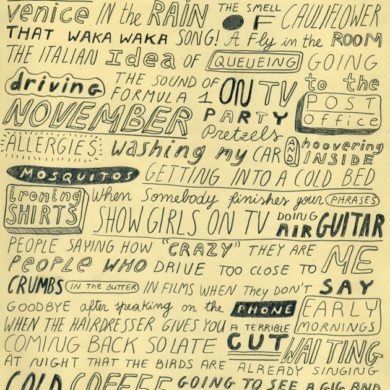 Venice IN the RAIN THE SMELL OF CAULIFLOWER
THAT WAKA WAKA SONG! A Fly in the ROOM
THE ITALIAN Idea of QUEUEING GOING
driving THE SOUND OF FORMULA 1 ON TV to the
NOVEMBER PARTY Pretzels POST OFFICE
ALLERGIES washing my CAR A hoovering INSIDE
MOSQUITOS GETTING INTO A COLD BED
Ironing SHIRTS When Somebody finishes your PHRASES
SHOW GIRLS ON TV DOING AIR GUITAR
PEOPLE SAYING HOW "CRAZY" THEY ARE
PEOPLE WHO DRIVE TOO CLOSE TO ME
CRUMBS IN THE BUTTER IN FILMS WHEN THEY DON'T SAY
GOODBYE after speaking on the PHONE EARLY MORNINGS
WHEN THE HAIRDRESSER GIVES YOU A TERRIBLE CUT
COMING BACK SO LATE WAITING
AT NIGHT THAT THE BIRDS ARE ALREADY SINGING
COLD COFFEE GOING TO SEE A GIG AND